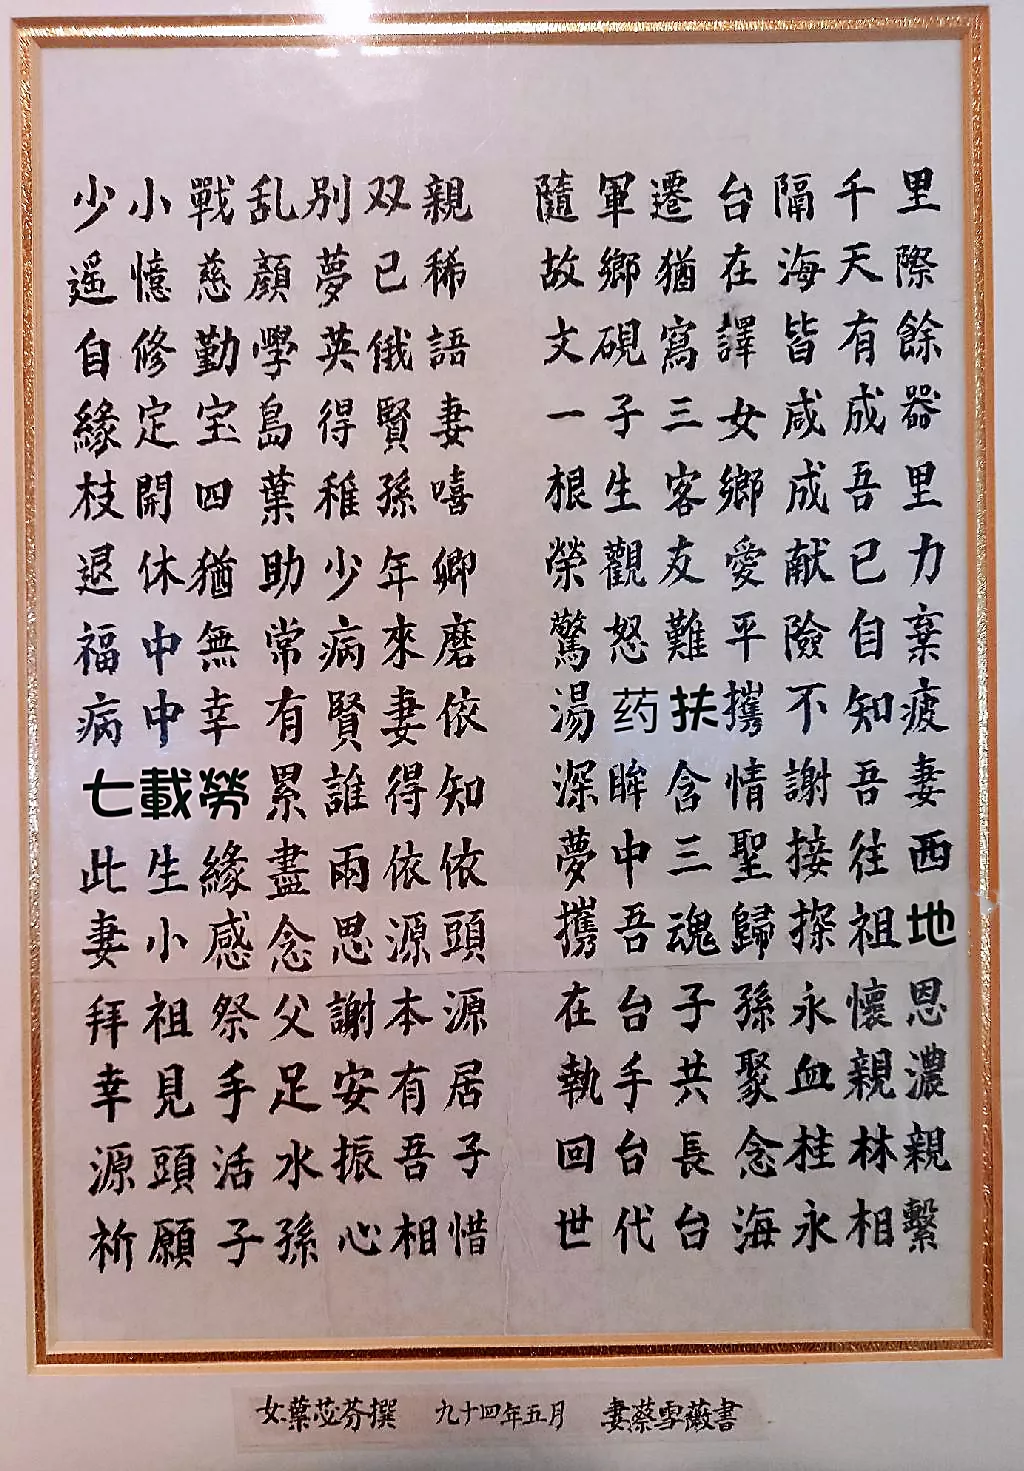 少小戰乱別双親
遥憶慈顏夢已稀
自修勤學英俄語
緣定宝島得賢妻
枝開四葉稚孫嘻
退休猶助少年卿
福中無常病來磨
病中幸有賢妻依
七載勞累誰得知
此生緣盡兩依依
妻小感念思源頭
拜祖祭父謝本源
幸見手足安有居
源頭活水振吾子
祈願子孫心相惜
隨軍遷台隔千里
故鄉猶在海天際
文硯寫譯皆有餘
一子三女咸成器
根生客鄉成吾里
榮觀友愛献已力
驚怒難平險自棄
湯药扶攜不知疲
深眸含情謝吾妻
夢中三聖接往西
攜吾魂歸探祖地
在台子孫永懷恩
執手共聚血親濃
回台長念桂林親
世代台海永相繫
女葉苙芬撰 九十四年五月 妻蔡雪薇書